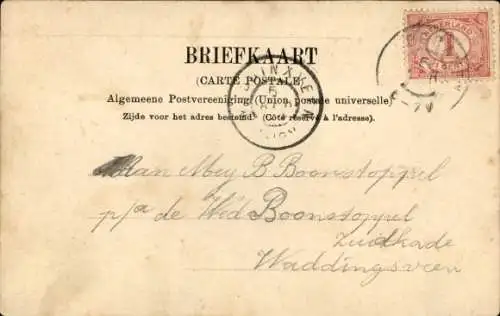 BRIEFKAART
(CARTE POSTALE)
Algemeene Postvereeniging (Union postale universelle)
Zijde voor het adres bestemd. (Côté réservé à l'adresse).
NEDERLAND
1
CENT
5
Aan Mej B Boonstoppel
p/a de Wed Boonstoppel
Zuidkade
Waddingsveen